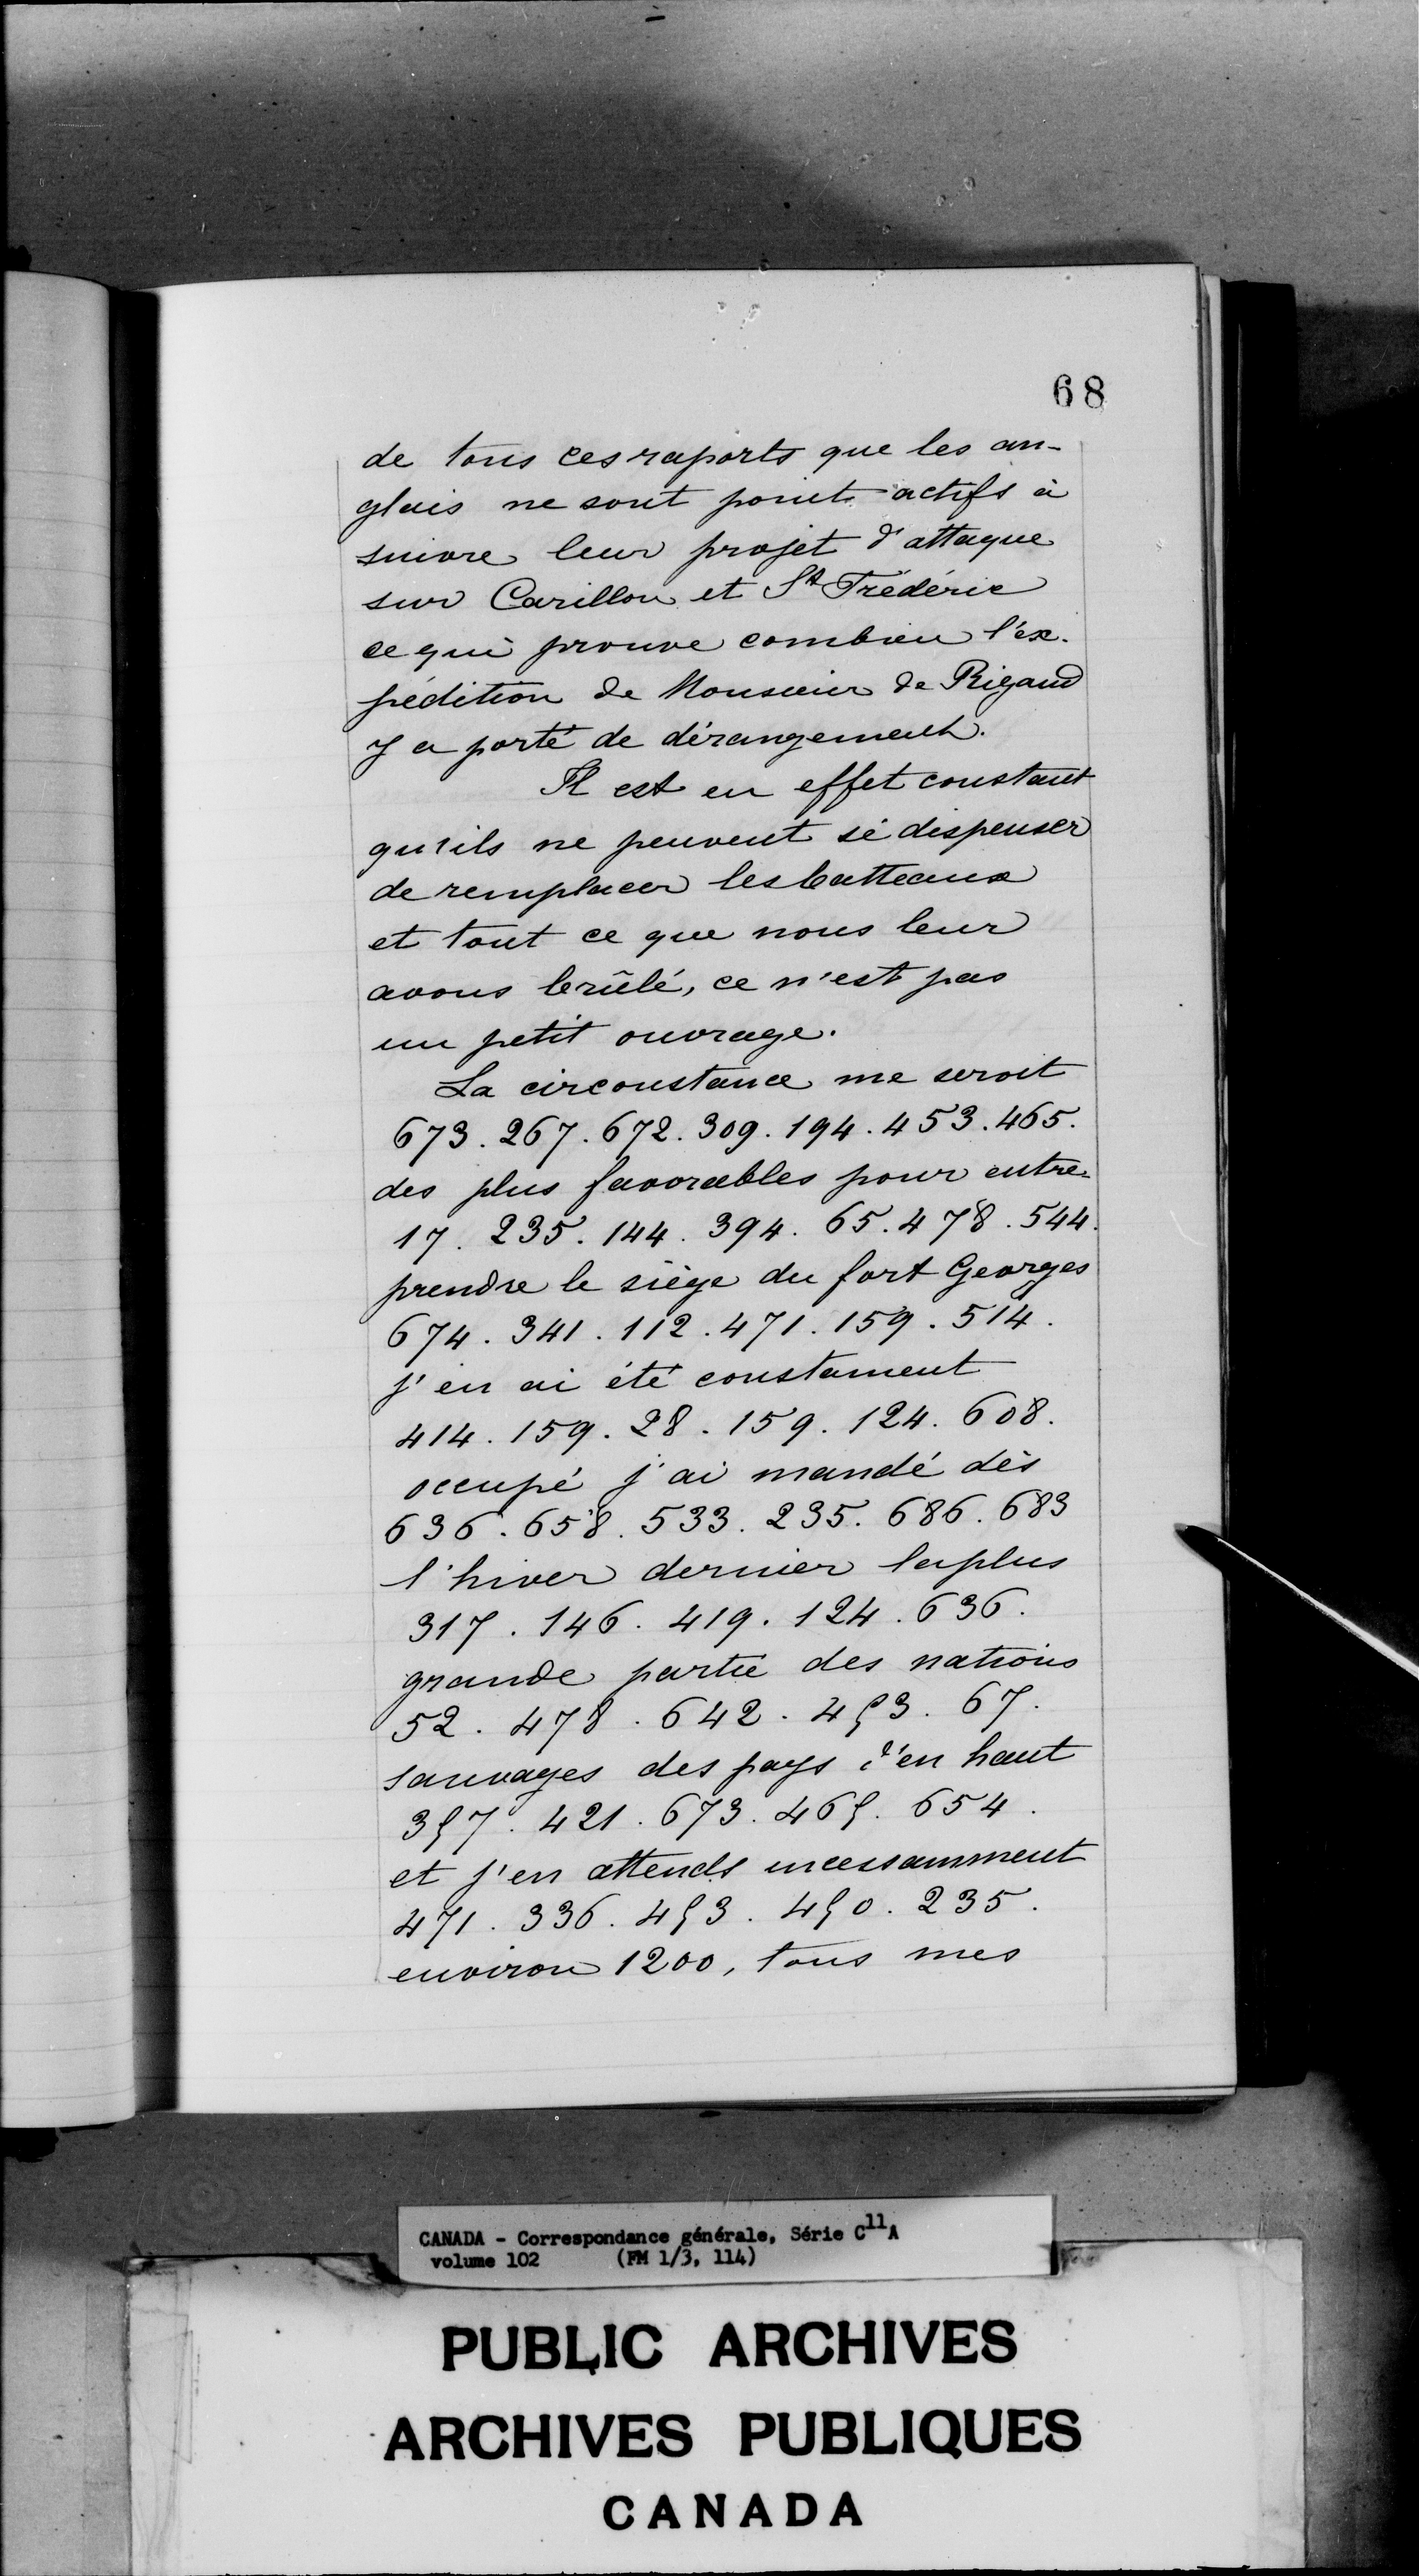 68
de tous ces raports que les an-
glais ne sont point actifs à
suivre leur projet d'attaque
sur Carillon et St Frédéric
ce qui prouve combien l'ex-
pédition de Monsieur de Rigaud
y a porté de dérangement.
Il est en effet constant
qu'ils ne peuvent se dispenser
de remplacer les batteaux
et tout ce que nous leur
avons brûlé, ce n'est pas
un petit ouvrage.
La circonstance me seroit
673. 267. 672. 309. 194. 453. 465.
des plus favorables pour entre-
17. 235. 144. 394. 65. 478. 544.
prendre le siège du fort Georges
674. 341. 112. 471. 159. 514.
j'en ai été constament
414. 159. 28. 159. 124. 608.
occupé j'ai mandé dès
636. 658. 533. 235. 686. 683
l'hiver dernier la plus
317. 146. 419. 124. 636.
grande partie des nations
52. 478. 642. 453. 67.
sauvages des pays d'en haut
357. 421. 673. 465. 654.
et j'en attends incessamment
471. 336. 453. 450. 235.
environ 1200, tous mes
CANADA - Correspondance générale, Série C11A
volume 102 (FM 1/3, 114)
PUBLIC ARCHIVES
ARCHIVES PUBLIQUES
CANADA